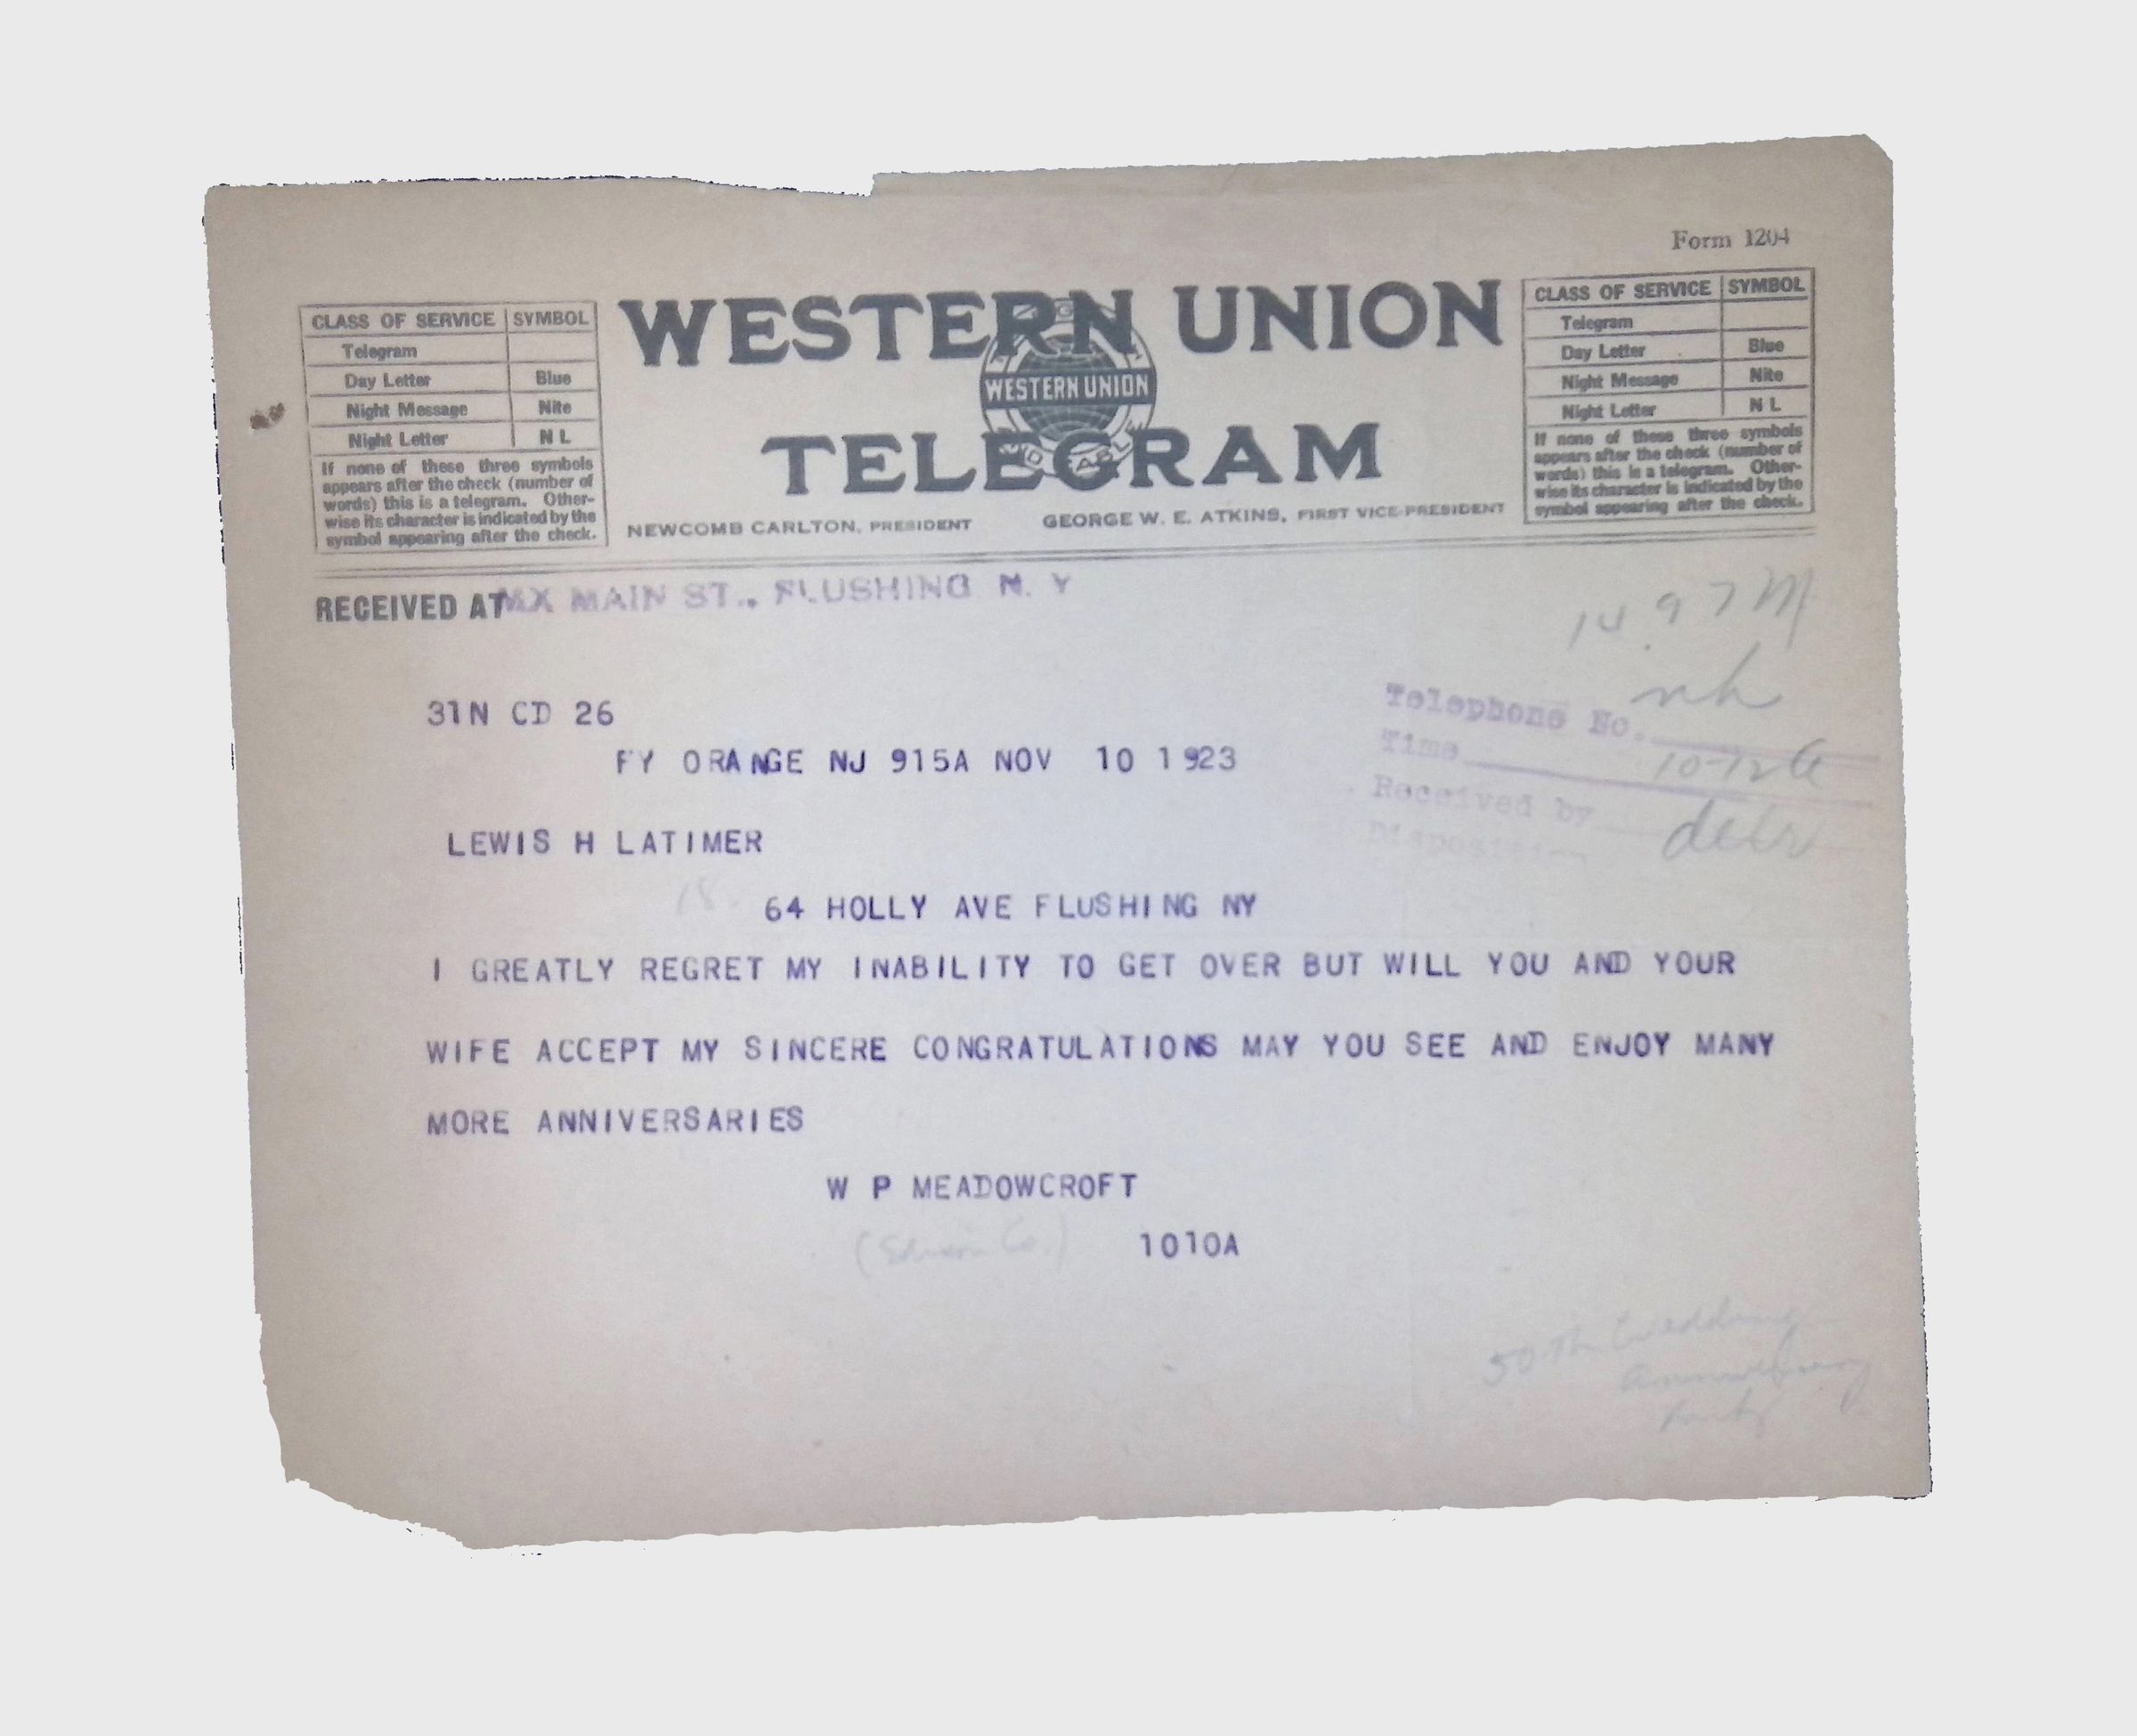 Form 1204
CLASS OF SERVICE SYMBOL
Telegram
Day Letter Blue
Night Message Nite
Night Letter N L
If none of these three symbols
appears after the check (number of
words) this is a telegram. Other-
wise its character is indicated by the
symbol appearing after the check.
WESTERN UNION
WESTERN UNION
TELEGRAM
NEWCOMB CARLTON, PRESIDENT GEORGE W. E. ATKINS, FIRST VICE-PRESIDENT
CLASS OF SERVICE SYMBOL
Telegram
Day Letter Blue
Night Message Nite
Night Letter N L
If none of these three symbols
appears after the check (number of
words) this is a telegram. Other-
wise its character is indicated by the
symbol appearing after the check.
RECEIVED AT MX MAIN ST., FLUSHING N. Y
Telephone No.
Time
Received by
Disposition
31N CD 26
FY ORANGE NJ 915A NOV 10 1923
LEWIS H LATIMER
64 HOLLY AVE FLUSHING NY
I GREATLY REGRET MY INABILITY TO GET OVER BUT WILL YOU AND YOUR
WIFE ACCEPT MY SINCERE CONGRATULATIONS MAY YOU SEE AND ENJOY MANY
MORE ANNIVERSARIES
W P MEADOWCROFT
(Edison Co.) 1010A
50th Wedding
Anniversary